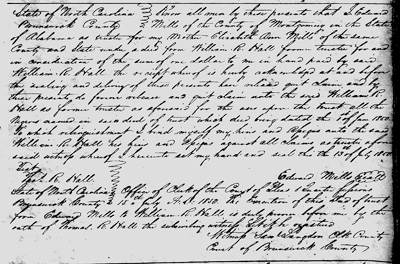 State of North Carolina } Know all men by these presents that I Edward
Brunswick County } Mills of the County of Montgomery in the State
of Alabama as trustee for my Mother Elizabeth Ann Mills of the same
County and State under a deed from William R. Hall former trustee for and
in consideration of the sum of one dollar to me in hand paid by said
William R. Hall the receipt whereof is hereby acknowledged at and before
the sealing and delivery of these presents have released and by
these presents do forever release and quit claim unto the said William R.
Hall as former trustee as aforesaid for the use upon the trust all the
Negroes named in said deed of trust which deed being dated the 1st Jan 1850
To which relinquishment I bind myself my heirs and assigns unto the said
William R. Hall his heirs and assigns against all Claims
said witness whereof I hereunto set my hand and seal this the 13 of July 1850
Test
Thos. R. Hall Edward Mills Seal
State of North Carolina } Office of Clerk of the Court of Pleas & Quarter Sessions
Brunswick County } July A.D. 1850. The execution of this deed of trust
from Edward Mills to William R. Hall is duly proven before me by the
oath of Thomas R. Hall the subscribing witness Let it be registered
Witness Saml Langdon Clk County
Court of Brunswick County